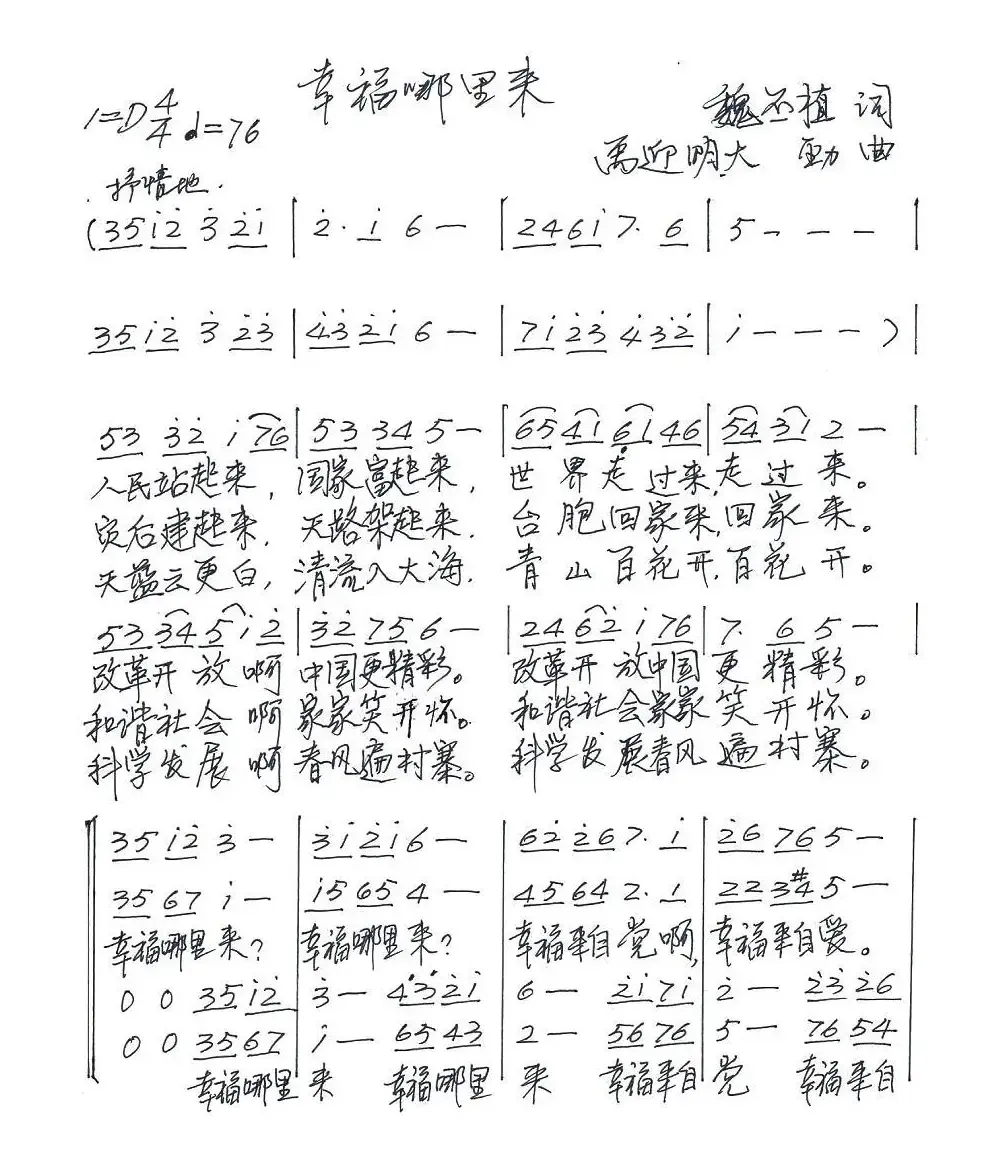 幸福哪里来
1=D 4/4 ♩=76
魏丕植 词
禹迎明、大勐 曲
抒情地.
(35i̇2̇ 3̇ 2̇i̇ | 2̇. i̇ 6 — | 246i̇ 7. 6 | 5 - - - |
35i̇2̇ 3̇ 2̇3̇ | 4̇3̇2̇i̇ 6 — | 7i̇2̇3̇ 4̇3̇2̇ | i̇ — — — ) |
53 3̇2̇ i̇ 76 | 53 34 5 — | 65 41 6̣1 46 | 54 31 2 — |
人民站起来, 国家富起来, 世界走过来,走过来。
灾后建起来, 天路架起来. 台胞回家来,回家来。
天蓝云更白, 清流入大海. 青山百花开,百花开。
53 34 5 i̇ 2̇ | 3̇2̇ 75 6 — | 24 62̇ i̇ 76 | 7. 6 5 — |
改革开放啊 中国更精彩。 改革开放中国更精彩。
和谐社会啊 家家笑开怀。 和谐社会家家笑开怀。
科学发展啊 春风遍村寨。 科学发展春风遍村寨。
35 i̇2̇ 3̇ — | 3̇i̇ 2̇i̇ 6 — | 62̇ 2̇6 7. i̇ | 2̇6 76 5 — |
35 67 i̇ — | i̇5 65 4 — | 45 64 2. 1 | 22 3#4 5 — |
幸福哪里来? 幸福哪里来? 幸福来自党啊, 幸福来自爱。
0 0 35i̇2̇ | 3̇ — 4̇3̇2̇i̇ | 6 — 2̇i̇7i̇ | 2̇ — 2̇3̇ 2̇6
0 0 3567 | i̇ — 65 43 | 2 — 56 76 | 5 — 76 54
幸福哪里来 幸福哪里来 幸福来自党 幸福来自